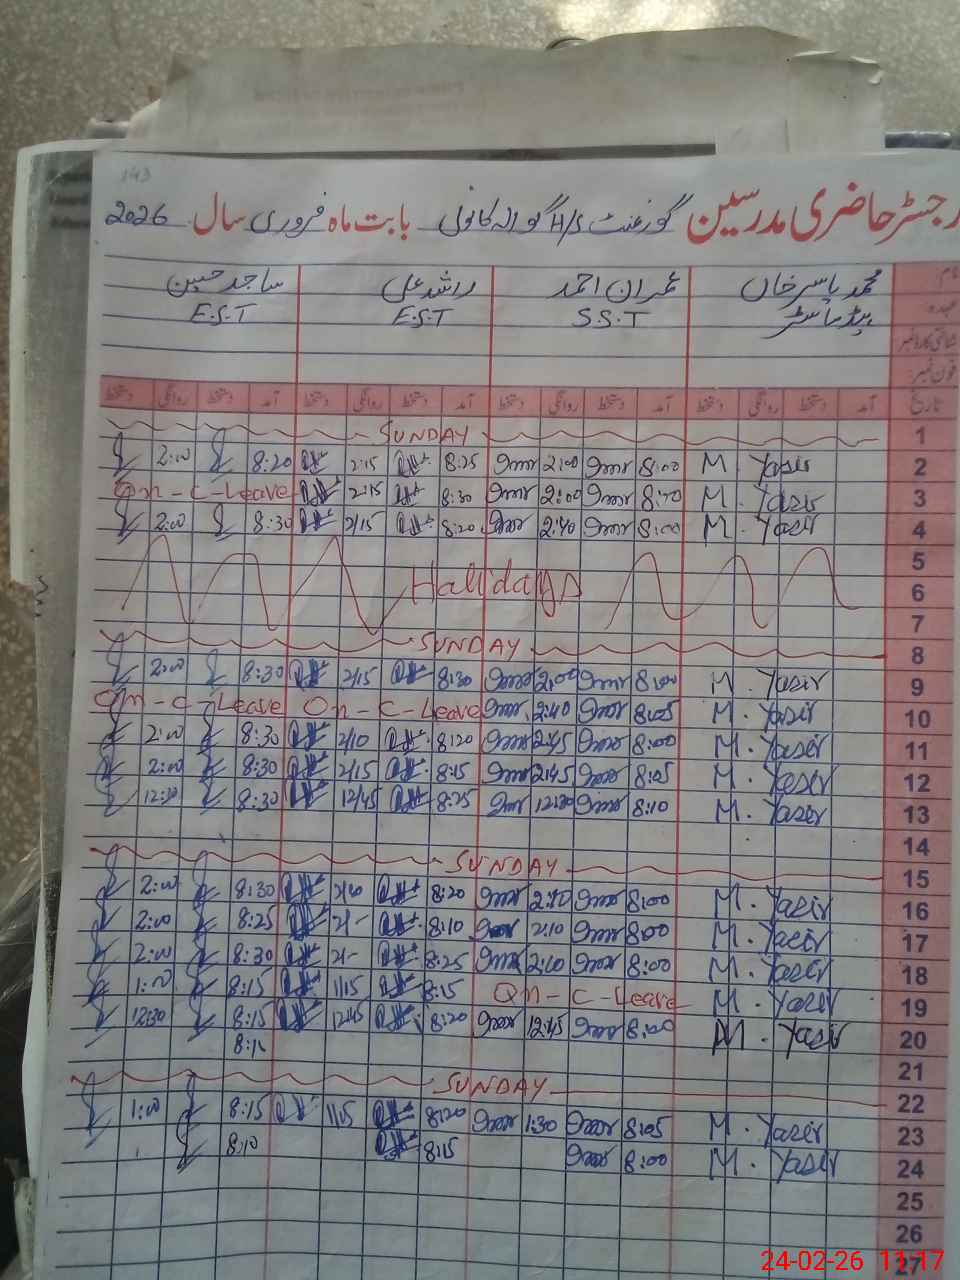 143
رجسٹر حاضری مدرسین گورنمنٹ H/S بابت ماہ فروری سال 2026
نام محمد یاسر خاں عمران احمد راشد علی ساجد حسین
عہدہ ہیڈ ماسٹر S.S.T E.S.T E.S.T
شناختی کارڈ نمبر
فون نمبر
تاریخ آمد دستخط روانگی دستخط آمد دستخط روانگی دستخط آمد دستخط روانگی دستخط آمد دستخط روانگی دستخط
SUNDAY 1
2:00 8:20 2:15 8:25 2:00 8:00 M. Yasir 2
On - C - Leave 2:15 8:30 2:00 8:10 M. Yasir 3
2:00 8:30 2/15 8:20 2:40 8:00 M. Yasir 4
5
Halidays 6
7
SUNDAY 8
2:00 8:30 2/15 8:30 2:00 8:00 M. Yasir 9
On - C - Leave On - C - Leave 2:40 8:05 M. Yasir 10
2:00 8:30 2/10 8:20 2:45 8:00 M. Yasir 11
2:00 8:30 2/15 8:15 2:45 8:05 M. Yasir 12
12:30 8:30 12/45 8:25 12:30 8:10 M. Yasir 13
14
SUNDAY 15
2:00 8:30 8:20 2:10 8:00 M. Yasir 16
2:00 8:25 2/- 8:10 2:10 8:00 M. Yasir 17
2:00 8:30 2/- 8:25 2:10 8:00 M. Yasir 18
1:00 8:15 1/15 8:15 On - C - Leave M. Yasir 19
12:30 8:15 12:45 8:20 12:45 8:00 M. Yasir 20
8:10 21
SUNDAY 22
1:00 8:15 1/15 8:20 1:30 8:05 M. Yasir 23
8:10 8:15 8:00 M. Yasir 24
25
26
27
24-02-26 11:17